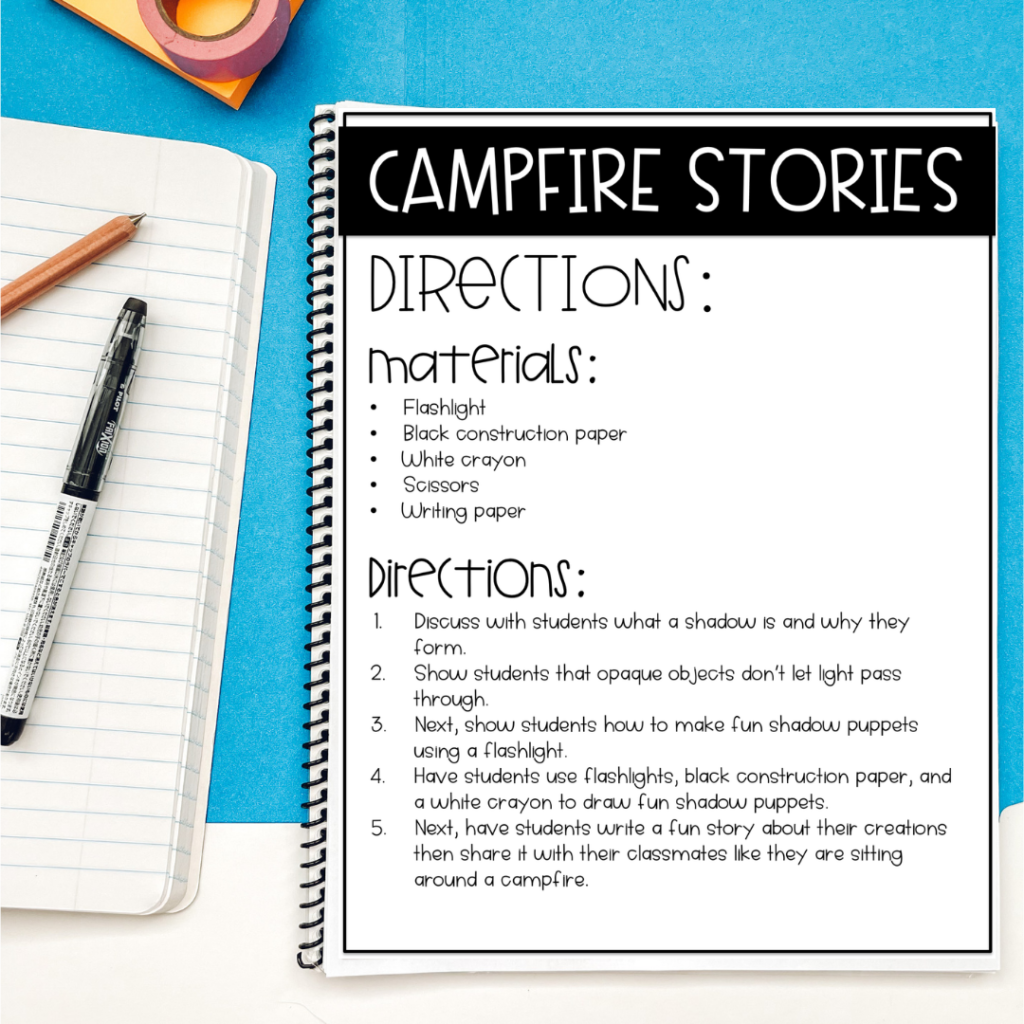 CAMPFIRE STORIES
DIRECTIONS:
Materials:
• Flashlight
• Black construction paper
• White crayon
• Scissors
• Writing paper
Directions:
1. Discuss with students what a shadow is and why they
form.
2. Show students that opaque objects don't let light pass
through.
3. Next, show students how to make fun shadow puppets
using a flashlight.
4. Have students use flashlights, black construction paper, and
a white crayon to draw fun shadow puppets.
5. Next, have students write a fun story about their creations
then share it with their classmates like they are sitting
around a campfire.
PILOT
FRIXION